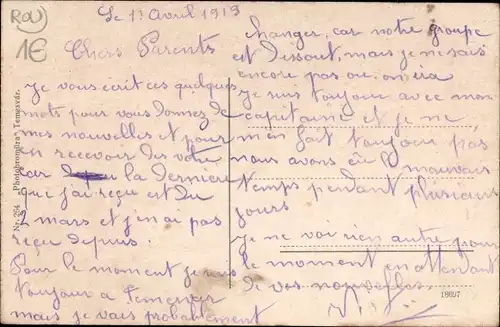 ROU
1E
Le 1r Avril 1919
Chers Parents
Je vous écrit ces quelques
mots pour vous donnez de
mes nouvelles et pour
en recevoir des votre
car la dernière
que j'ai reçu et du
2 mars et j'n ai pas
reçu depuis.
Pour le moment je suis
toujour a Temesvar
mais je vais probablement
changer, car notre groupe
et dissout, mais je ne sais
encore pas ou on ira
je suis toujour avec mon
capitaine et je ne
m'en fait toujour pas
nous avons eu mauvais
temps pendant plusieurs
jours
je ne voi rien autre pour
le moment en attendant
de vos nouvelles.
Nr. 264 Photobromüra Temesvár.
18697